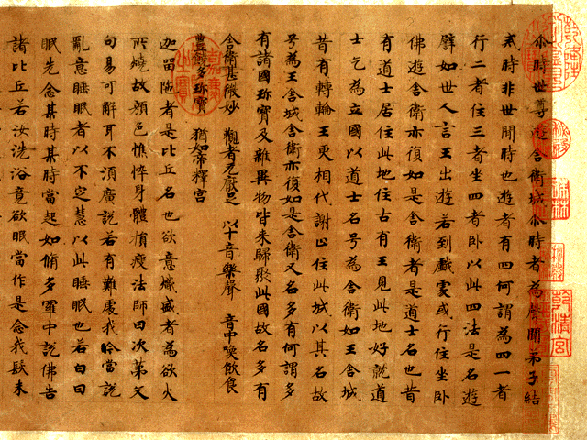 尒時世尊遊舍衛城尒時者為聲聞弟子結
戒時非世間時也遊者有四何謂為四一者
行二者住三者坐四者卧以此四法是名遊
譬如世人言王出遊若到戲處或行住坐卧
佛遊舍衛亦復如是舍衛者是道士名也昔
有道士居住此地往古有王見此地好就道
士乞為立國以道士名号為舍衛如王舍城
昔有轉輪王更相代謝止住此城以其名故
号為王舍城舍衛亦復如是舍衛又名多有何謂多
有諸國珎寶及雜異物皆來歸聚此國故名多有
舍衛甚微妙 觀者无厭足 以十音樂聲 音中喚飲食
豐饒多珎寶 猶如帝釋宮
迦留陁者是比丘名也欲意熾盛者為欲火
所燒故顏色憔悴身體損瘦法師曰次第文
句易可解耳不湏廣說若有難處我今當說
亂意睡眠者以不定慧以此睡眠也若白日
眠先念某時某時當起如脩多羅中說佛告
諸比丘若汝洗浴竟欲眠當作是念我髮未
乾清宮